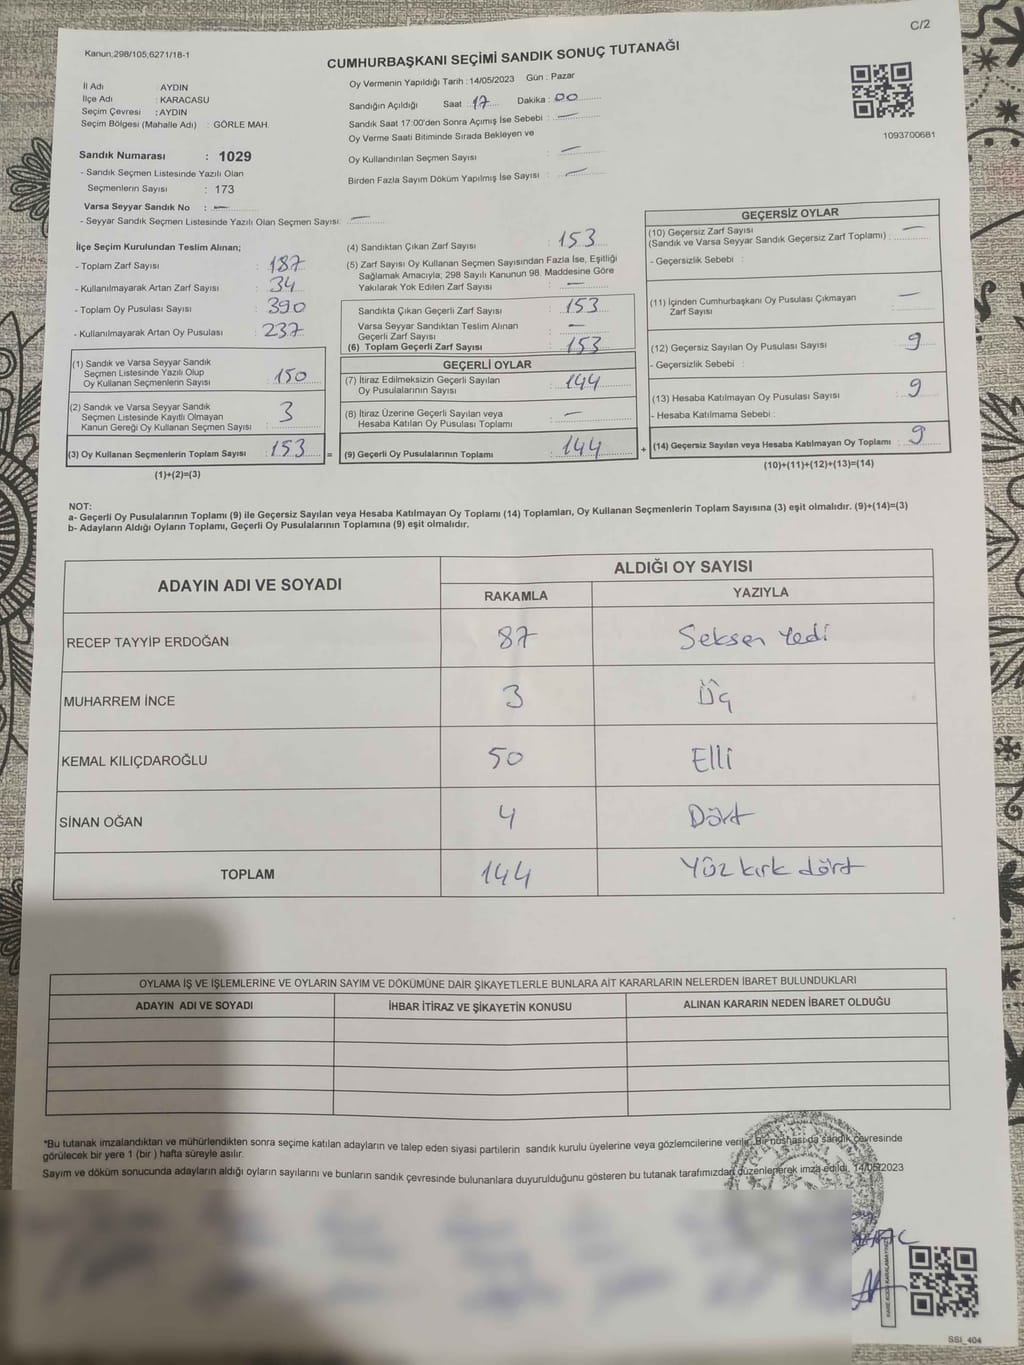 C/2
Kanun,298/105,6271/18-1
CUMHURBAŞKANI SEÇİMİ SANDIK SONUÇ TUTANAĞI
İl Adı : AYDIN
İlçe Adı : KARACASU
Seçim Çevresi : AYDIN
Seçim Bölgesi (Mahalle Adı) : GÖRLE MAH.
Oy Vermenin Yapıldığı Tarih : 14/05/2023 Gün : Pazar
Sandığın Açıldığı Saat : 17 Dakika : 00
Sandık Saat 17:00'den Sonra Açımış İse Sebebi : —
Oy Verme Saati Bitiminde Sırada Bekleyen ve
Oy Kullandırılan Seçmen Sayısı : —
Birden Fazla Sayım Döküm Yapılmış İse Sayısı : —
1093700681
Sandık Numarası : 1029
- Sandık Seçmen Listesinde Yazılı Olan
Seçmenlerin Sayısı : 173
Varsa Seyyar Sandık No : —
- Seyyar Sandık Seçmen Listesinde Yazılı Olan Seçmen Sayısı: —
İlçe Seçim Kurulundan Teslim Alınan;
- Toplam Zarf Sayısı : 187
- Kullanılmayarak Artan Zarf Sayısı : 34
- Toplam Oy Pusulası Sayısı : 390
- Kullanılmayarak Artan Oy Pusulası : 237
(1) Sandık ve Varsa Seyyar Sandık
Seçmen Listesinde Yazılı Olup
Oy Kullanan Seçmenlerin Sayısı : 150
(2) Sandık ve Varsa Seyyar Sandık
Seçmen Listesinde Kayıtlı Olmayan
Kanun Gereği Oy Kullanan Seçmen Sayısı : 3
(3) Oy Kullanan Seçmenlerin Toplam Sayısı : 153 =
(1)+(2)=(3)
(4) Sandıktan Çıkan Zarf Sayısı : 153
(5) Zarf Sayısı Oy Kullanan Seçmen Sayısından Fazla İse, Eşitliği
Sağlamak Amacıyla; 298 Sayılı Kanunun 98. Maddesine Göre
Yakılarak Yok Edilen Zarf Sayısı : —
Sandıkta Çıkan Geçerli Zarf Sayısı : 153
Varsa Seyyar Sandıktan Teslim Alınan
Geçerli Zarf Sayısı : —
(6) Toplam Geçerli Zarf Sayısı : 153
GEÇERLİ OYLAR
(7) İtiraz Edilmeksizin Geçerli Sayılan
Oy Pusulalarının Sayısı : 144
(8) İtiraz Üzerine Geçerli Sayılan veya
Hesaba Katılan Oy Pusulası Toplamı : —
(9) Geçerli Oy Pusulalarının Toplamı : 144 +
GEÇERSİZ OYLAR
(10) Geçersiz Zarf Sayısı
(Sandık ve Varsa Seyyar Sandık Geçersiz Zarf Toplamı) : —
- Geçersizlik Sebebi :
(11) İçinden Cumhurbaşkanı Oy Pusulası Çıkmayan
Zarf Sayısı : —
(12) Geçersiz Sayılan Oy Pusulası Sayısı : 9
- Geçersizlik Sebebi :
(13) Hesaba Katılmayan Oy Pusulası Sayısı : 9
- Hesaba Katılmama Sebebi :
(14) Geçersiz Sayılan veya Hesaba Katılmayan Oy Toplamı : 9
(10)+(11)+(12)+(13)=(14)
NOT:
a- Geçerli Oy Pusulalarının Toplamı (9) ile Geçersiz Sayılan veya Hesaba Katılmayan Oy Toplamı (14) Toplamları, Oy Kullanan Seçmenlerin Toplam Sayısına (3) eşit olmalıdır. (9)+(14)=(3)
b- Adayların Aldığı Oyların Toplamı, Geçerli Oy Pusulalarının Toplamına (9) eşit olmalıdır.
ADAYIN ADI VE SOYADI
ALDIĞI OY SAYISI
RAKAMLA YAZIYLA
RECEP TAYYİP ERDOĞAN 87 Seksen Yedi
MUHARREM İNCE 3 Üç
KEMAL KILIÇDAROĞLU 50 Elli
SİNAN OĞAN 4 Dört
TOPLAM 144 Yüz kırk dört
OYLAMA İŞ VE İŞLEMLERİNE VE OYLARIN SAYIM VE DÖKÜMÜNE DAİR ŞİKAYETLERLE BUNLARA AİT KARARLARIN NELERDEN İBARET BULUNDUKLARI
ADAYIN ADI VE SOYADI İHBAR İTİRAZ VE ŞİKAYETİN KONUSU ALINAN KARARIN NEDEN İBARET OLDUĞU
*Bu tutanak imzalandıktan ve mühürlendikten sonra seçime katılan adayların ve talep eden siyasi partilerin sandık kurulu üyelerine veya gözlemcilerine verilir. Bir nüshası da sandık çevresinde
görülecek bir yere 1 (bir ) hafta süreyle asılır.
Sayım ve döküm sonucunda adayların aldığı oyların sayılarını ve bunların sandık çevresinde bulunanlara duyurulduğunu gösteren bu tutanak tarafımızdan düzenlenerek imza edildi. 14/05/2023
SSI_404